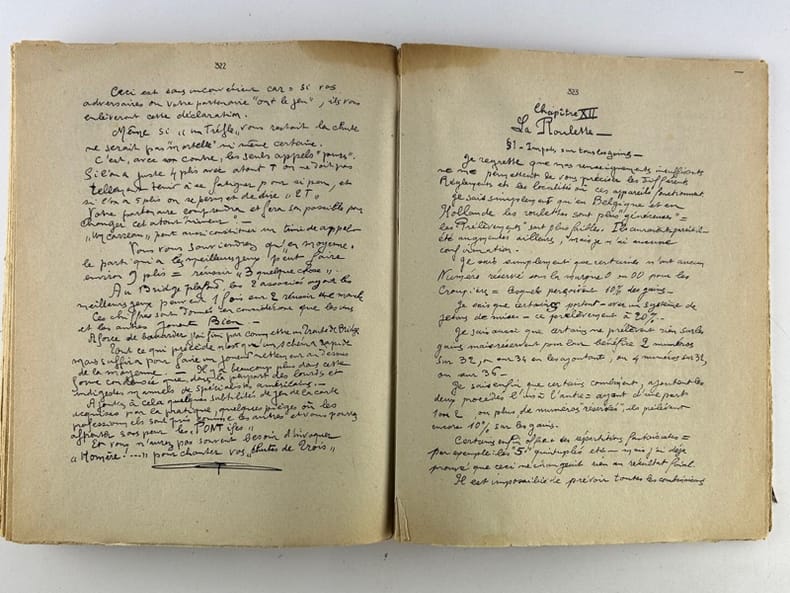 322
Ceci est sans inconvénient car = si vos
adversaires ou votre partenaire "ont le jeu", ils vous
enlèveront cette déclaration.
Même si "un Trèfle" vous restait la chute
ne serait pas mortelle ni même certaine.
C'est, avec son contre, les seuls appels
Si l'on a juste 4 plis avec atout T on ne doit pas
pour si peu, et
si l'on a 5 plis on se permet de dire "2T"
Votre partenaire comprendra et fera son possible pour
changer cet atout mineur" —
"Un carreau" peut aussi constituer un timide appel
Vous vous souviendrez qu'en moyenne,
le parti qui a les meilleurs jeux peut faire
environ 9 plis = réussir "3 quelque chose".
Au Bridge plafond, les 2 associés ayant les
meilleurs jeux peuvent 1 fois sur 2 réussir une manche
Ces chiffres sont donnés en considérant que les uns
et les autres jouent Bien —
A force de bavarder j'ai fini par commettre un Traité de Bridge
Tout ce qui précède n'est que un schéma rapide
mais suffira pour faire un joueur nettement au dessus
de la moyenne. — Il y a beaucoup plus dans cette
forme condensée que dans la plupart des lourds et
indigestes manuels de spécialistes américains. —
Ajoutez à cela quelques subtilités de jeu de la carte
acquises par la pratique, quelques pièges où les
professionnels sont pris comme les autres et vous pouvez
affronter sans peur les "PONTifes"
Et vous n'aurez pas souvent besoin d'invoquer
"Homère!..." pour chanter vos "chutes de Trois"
323
Chapitre XII
La Roulette —
§1 - Impôts sur tous les gains —
Je regrette que mes renseignements insuffisants
ne me permettent de vous préciser les différents
Règlements et les localités où ces appareils fonctionnent
Je sais simplement qu'en Belgique et en
Hollande les roulettes sont plus "généreuses" =
les "Prélèvements" sont plus faibles.
été augmentés ailleurs, mais je n'ai aucune
confirmation.
Je sais simplement que certaines n'ont aucun
Numéro réservé sous la marque 0 ou 00 pour les
Croupiers = lesquels perçoivent 10% des gains —
Je sais que certaines portent — avec un système de
jetons de mises — ce prélèvement à 20% —
Je sais aussi que certains ne prélèvent rien sur les
gains mais réservent pour leur bénéfice 2 numéros
sur 32, ou sur 34 en les ajoutant, ou 4 numéros sur 32,
ou sur 36 —
Je sais enfin que certains combinent, ajoutant les
deux procédés l'un à l'autre = ayant d'une part
1 ou 2, ou plus de numéros "réservés", ils prélèvent
encore 10% sur les gains.
Certains enfin offrent des répartitions fantaisistes =
par exemple les "5" quintuplés etc — mais j'ai déjà
prouvé que ceci ne changeait rien au résultat final.
Il est impossible de prévoir toutes les combinaisons